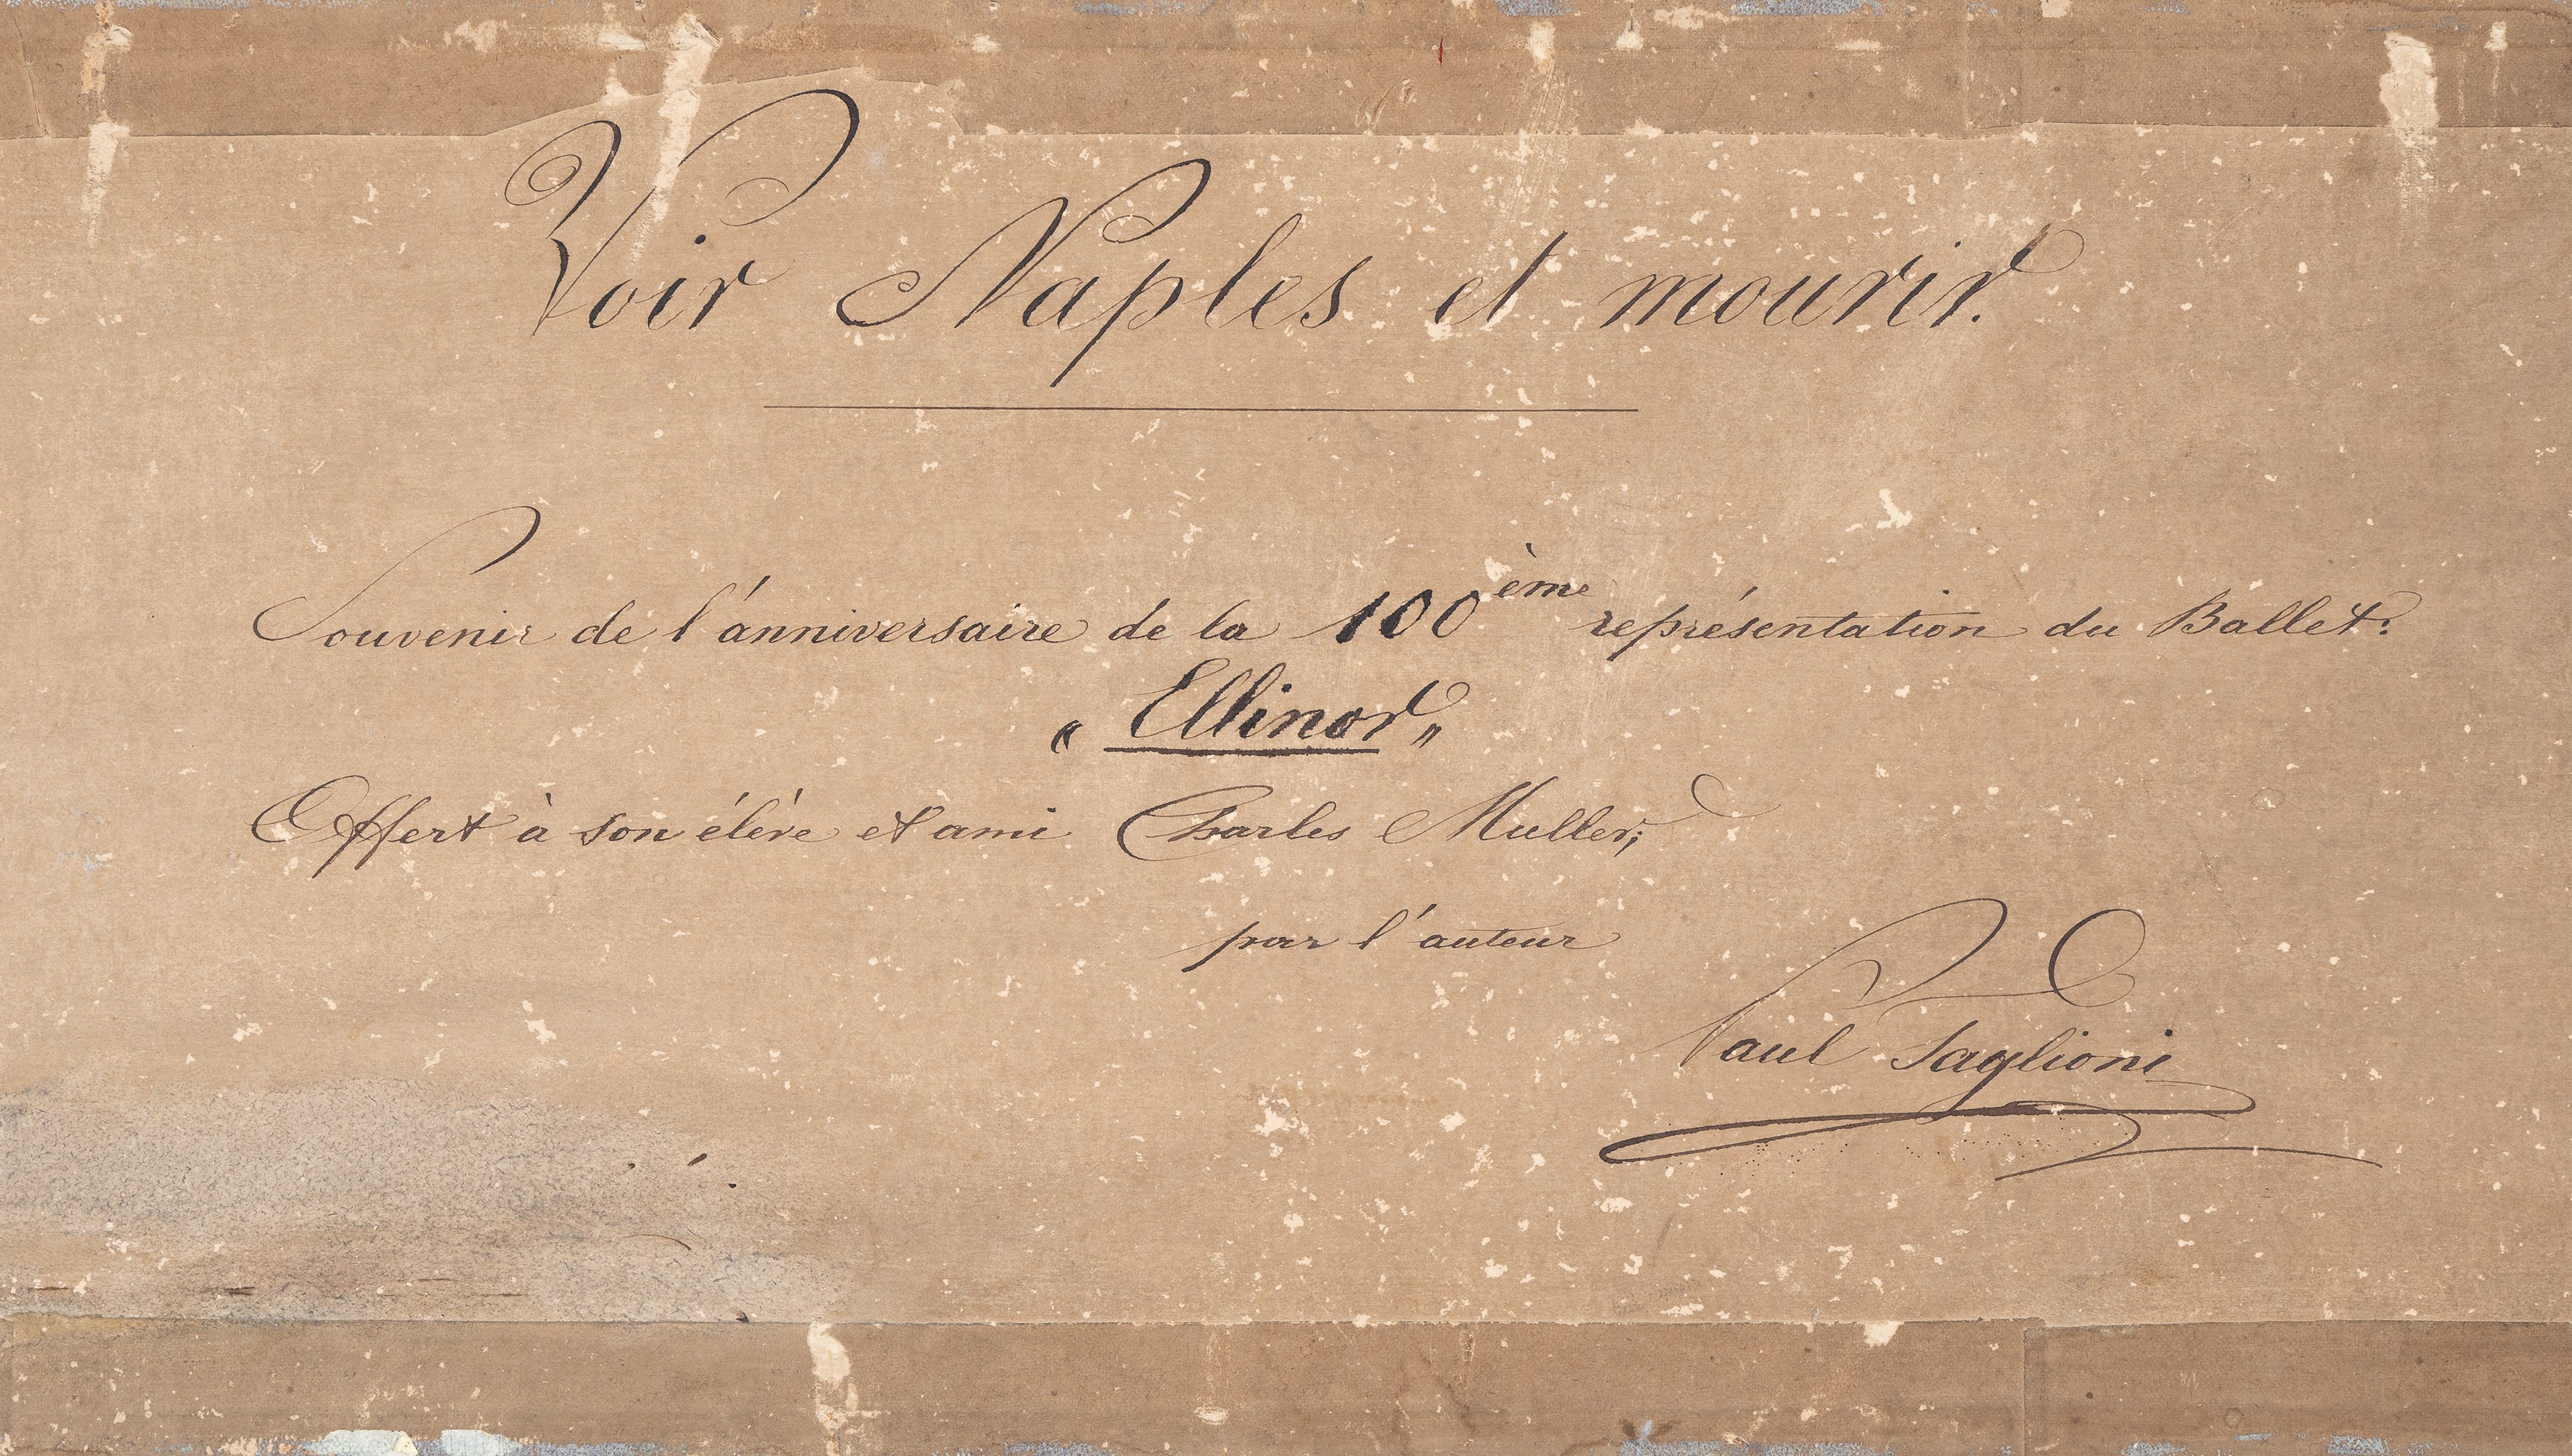 Voir Naples et mourir.
Souvenir de l'anniversaire de la 100ème représentation du Ballet:
„ Ellinor „
Offert à son élève et ami Charles Muller;
par l'auteur
Paul Taglioni